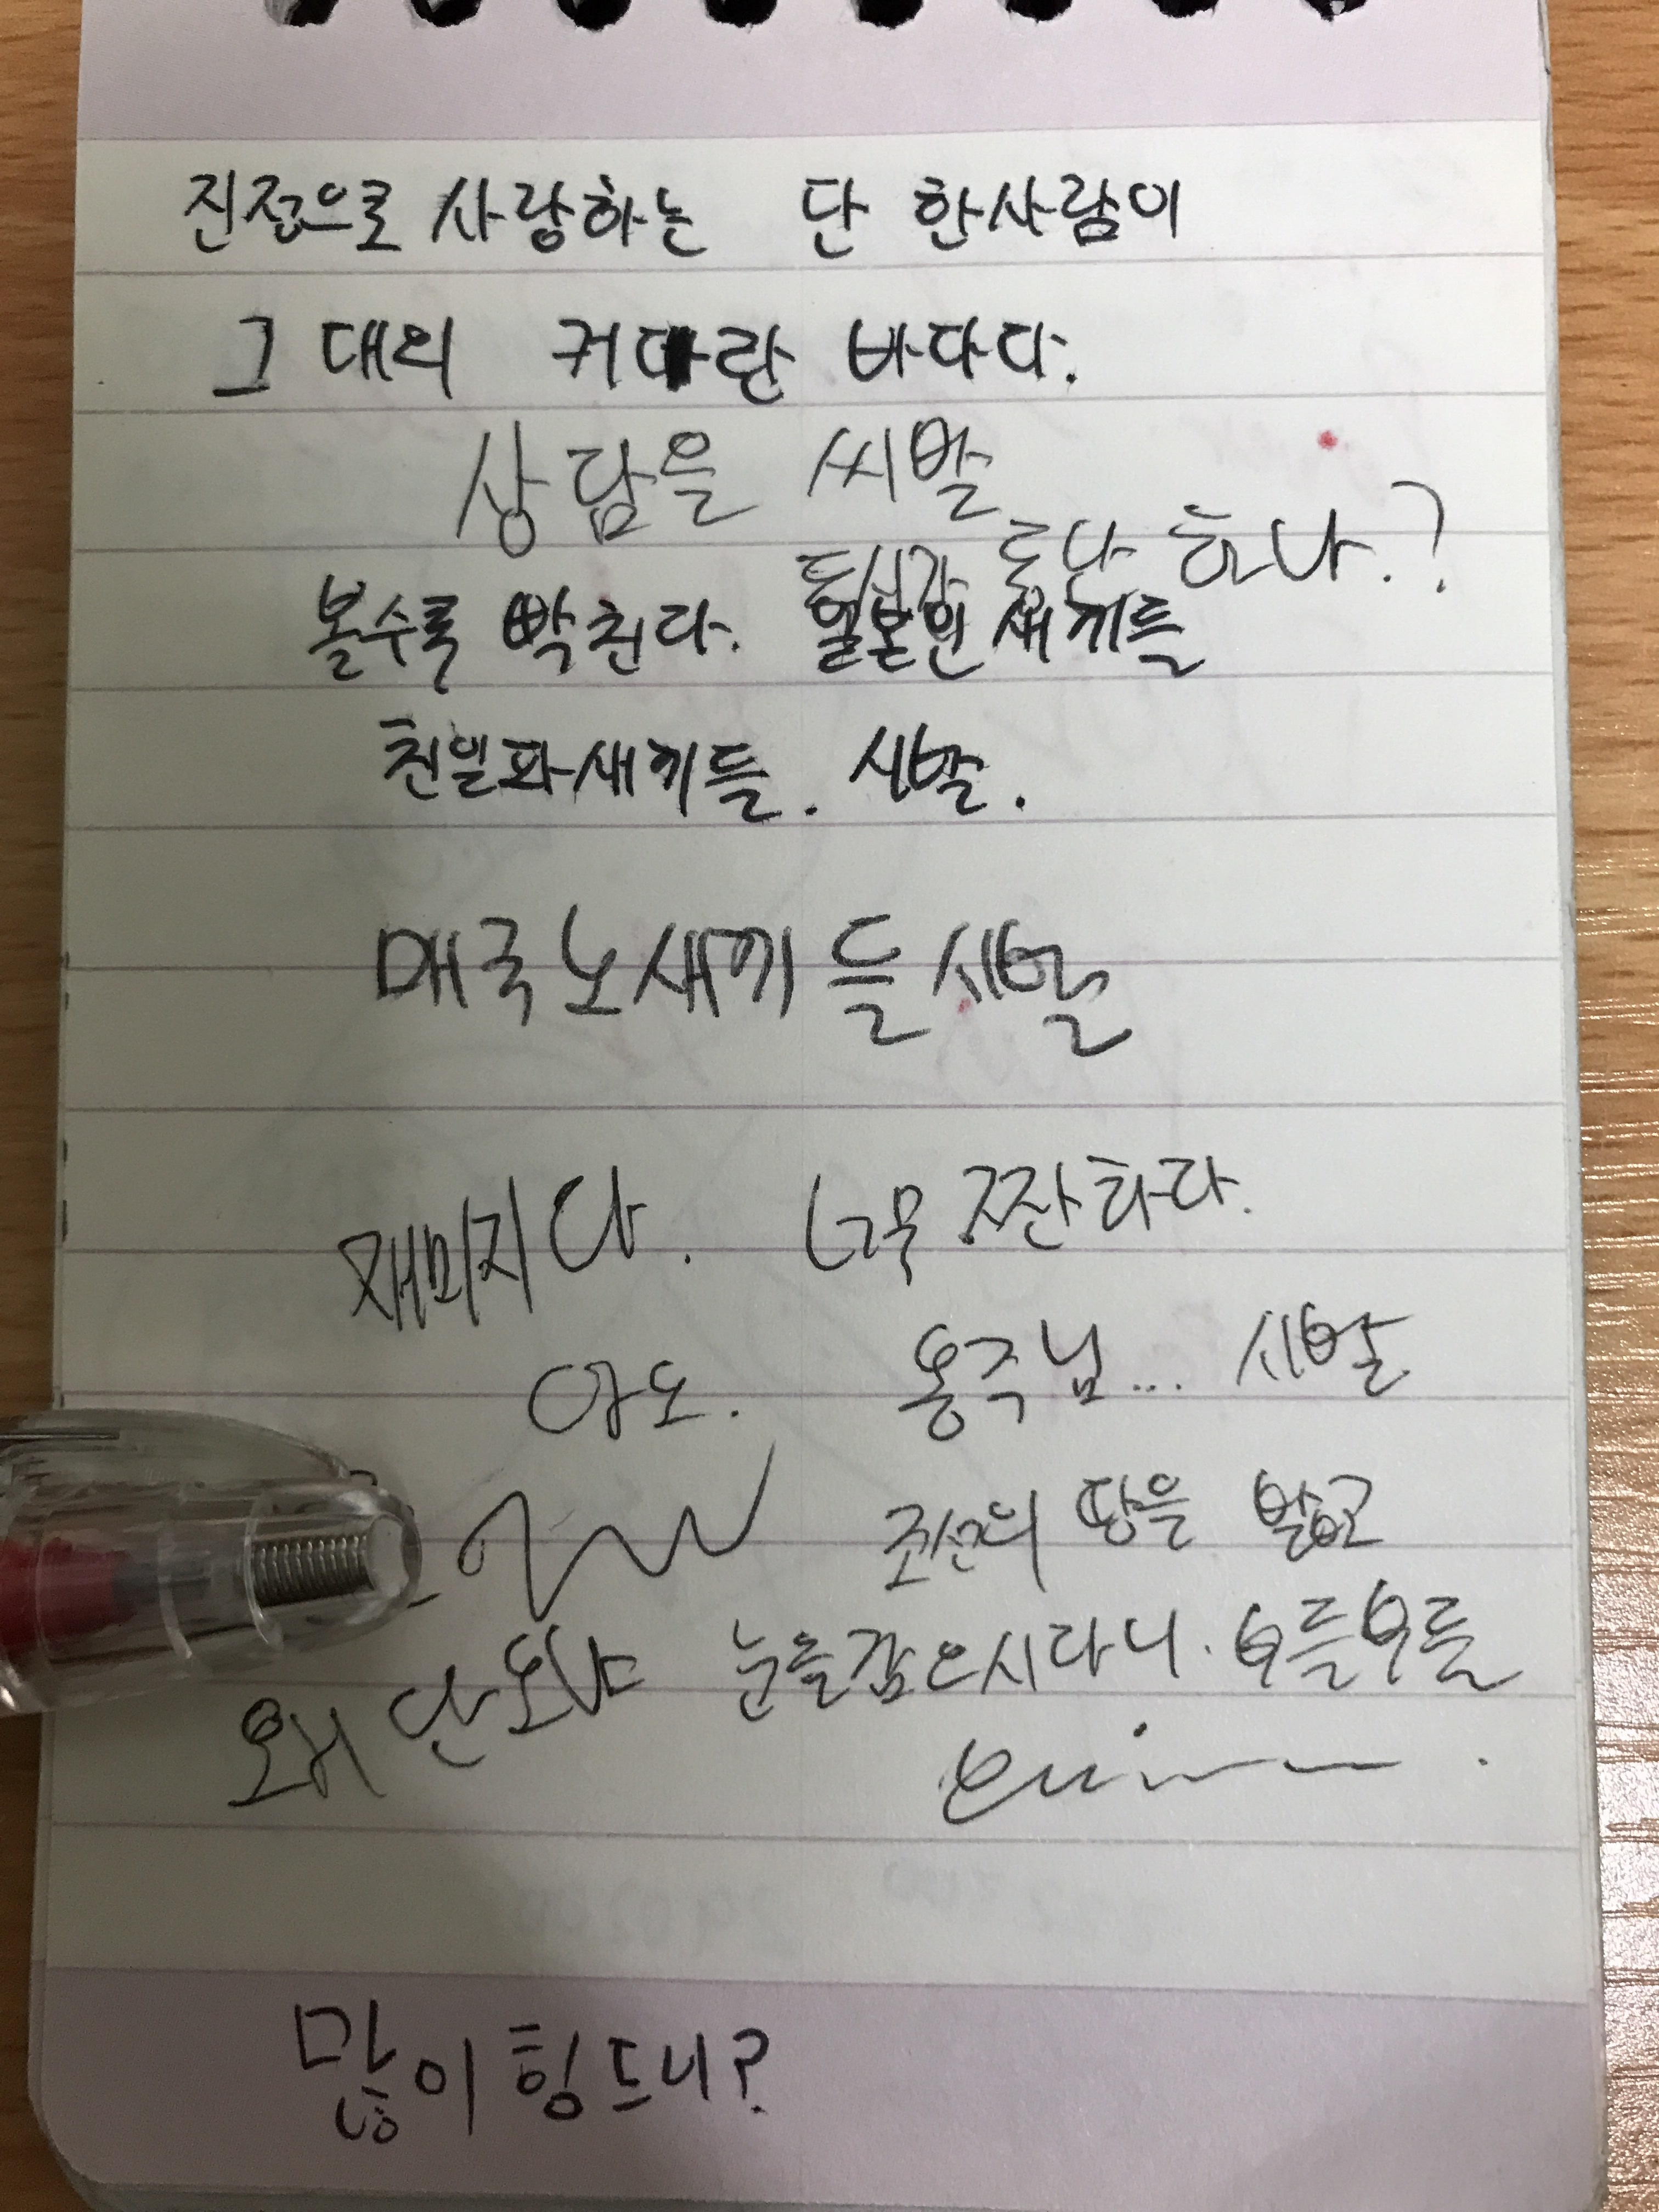 진정으로 사랑하는 단 한사람이
그대의 커다란 바다다.
상담을 씨발
하나.?
볼수록 빡친다. 일본인 새끼들
친일파새끼들. 시발.
매국노새끼들시발
재미지다. 너무 짠하다.
아오. 몽주님... 시발
조선의 땅을 밟고
왜 안와 눈을감으시다니. 부들부들
많이 힝드니?